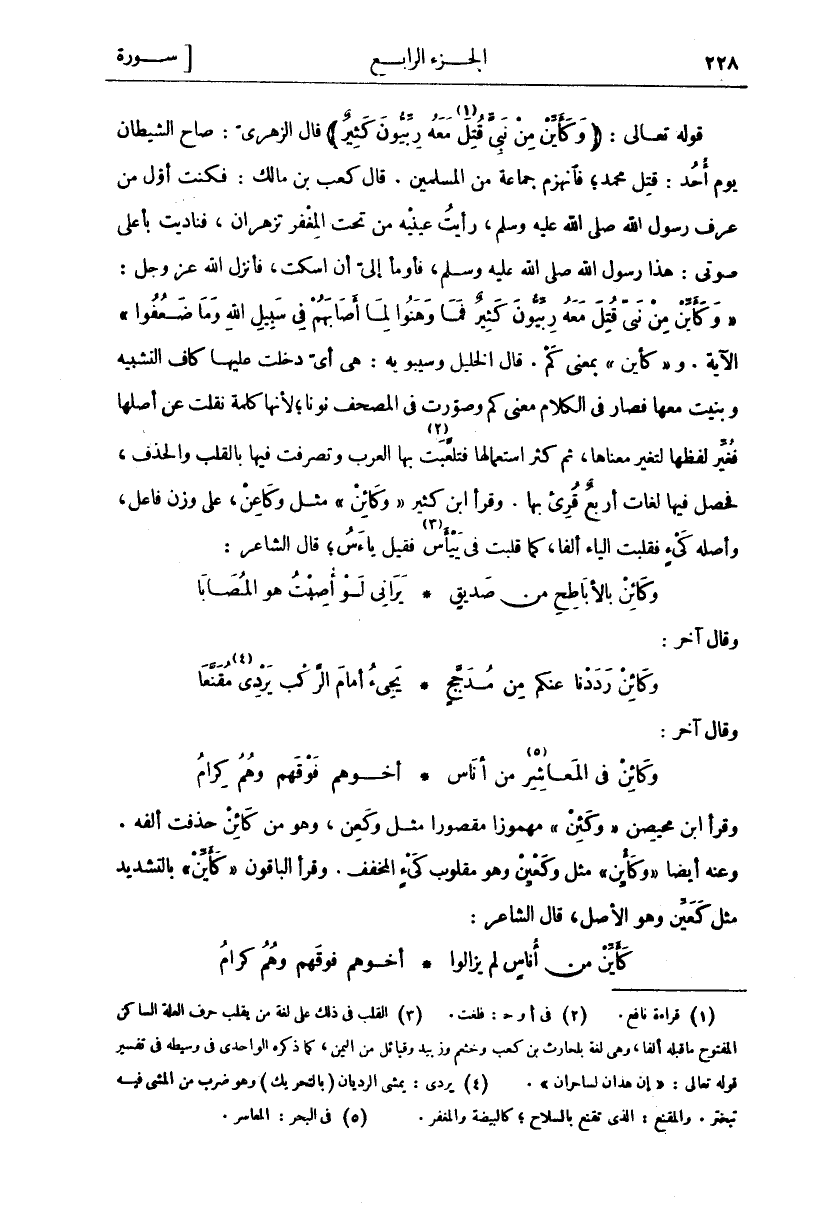 ٢٢٨ الجـزء الرابـع [ سـورة
قوله تعـالى : ﴿ وَكَأَيِّنْ مِنْ نَبِيٍّ قُتِلَ (١) مَعَهُ رِبِّيُّونَ كَثِيرٌ ﴾ قال الزهرىّ : صاح الشيطان
يوم أُحُد : قتل محمد؛ فآنهزم جماعة من المسلمين . قال كعب بن مالك : فـكنت أوّل من
عرف رسول الله صلى الله عليه وسلم، رأيتُ عينيْه من تحت المِغْفر تزهران ، فناديت بأعلى
صوتى : هذا رسول الله صلى الله عليه وسـلم، فأومأ إلىّ أن اسكت، فأنزل الله عز وجل :
« وَكَأَيِّنْ مِنْ نَبِيٍّ قُتِلَ مَعَهُ رِبِّيُّونَ كَثِيرٌ فَمَـا وَهَنُوا لِمَـا أَصَابَهُمْ فِى سَبِيلِ اللهِ وَمَا ضَـعُفُوا »
الآية . و « كأين » بمعنى كَمْ . قال الخليل وسيبويه : هى أىّ دخلت عليهـا كاف التشبيه
وبنيت معها فصار فى الكلام معنى كم وصوّرت فى المصحف نونا؛ لأنها كلمة نقلت عن أصلها
فغُيِّر لفظها لتغير معناها، ثم كثر استعمالها فتلعَّبَت (٢) بها العرب وتصرفت فيها بالقلب والحذف ،
فحصل فيها لغات أربعٌ قُرِئ بها . وقرأ ابن كثير « وكَائِنْ » مثـل وكَاعِنْ، على وزن فاعل،
وأصله كَىْءٍ فقلبت الياء ألفا، كما قلبت فى يَيْأَس (٣) فقيل ياءَسُ؛ قال الشاعر :
وكائِنْ بالأبَاطِحِ مِـن صَدِيقٍ * يَرَانِى لَـوْ أُصِبْتُ هو المُصَـابَا
وقال آخر :
وكَائِنْ رَدَدْنا عنكم مِن مُـدَجَّجٍ * يَجِىءُ أمامَ الرَّكْب يَرْدِى مُقَنَّعَا (٤)
وقال آخر :
وكَائِنْ فى المَعَـاشِرِ (٥) من أنَاس * أخـوهم فَوْقَهم وهُمُ كِرامُ
وقرأ ابن محيصن « وكَئِنْ » مهموزا مقصورا مثـل وكَعِن ، وهو من كَائِنْ حذفت ألفه .
وعنه أيضا «وكَأْيِن» مثل وكَعْيِنْ وهو مقلوب كَىْءٍ المخفف . وقرأ الباقون «كَأَيِّنْ» بالتشديد
مثل كَعَيِّن وهو الأصل، قال الشاعر :
كَأَيِّنْ مِـن أُناسٍ لم يزالوا * أخـوهم فوقَهم وهُمُ كرامُ
(١) قراءة نافع. (٢) فى أ و حـ : فلغت. (٣) القلب فى ذلك على لغة من يقلب حرف العلة الساكن
المفتوح ماقبله ألفا، وهى لغة بلحارث بن كعب وخثعم وزبيد وقبائل من اليمن ، كما ذكره الواحدى فى وسيطه فى تفسير
قوله تعالى : « إن هذان لساحران » . (٤) يردى : يمشى الرديان (بالتحريك) وهو ضرب من المشى فيـه
تبختر . والمقنع : الذى تقنع بالسلاح ؛ كالبيضة والمغفر . (٥) فى البحر : المعاسر .